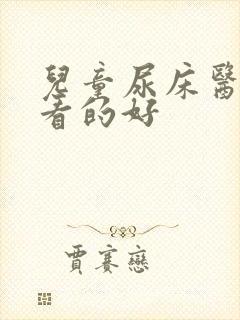 兒童尿床醫
者的好
賈賽戀